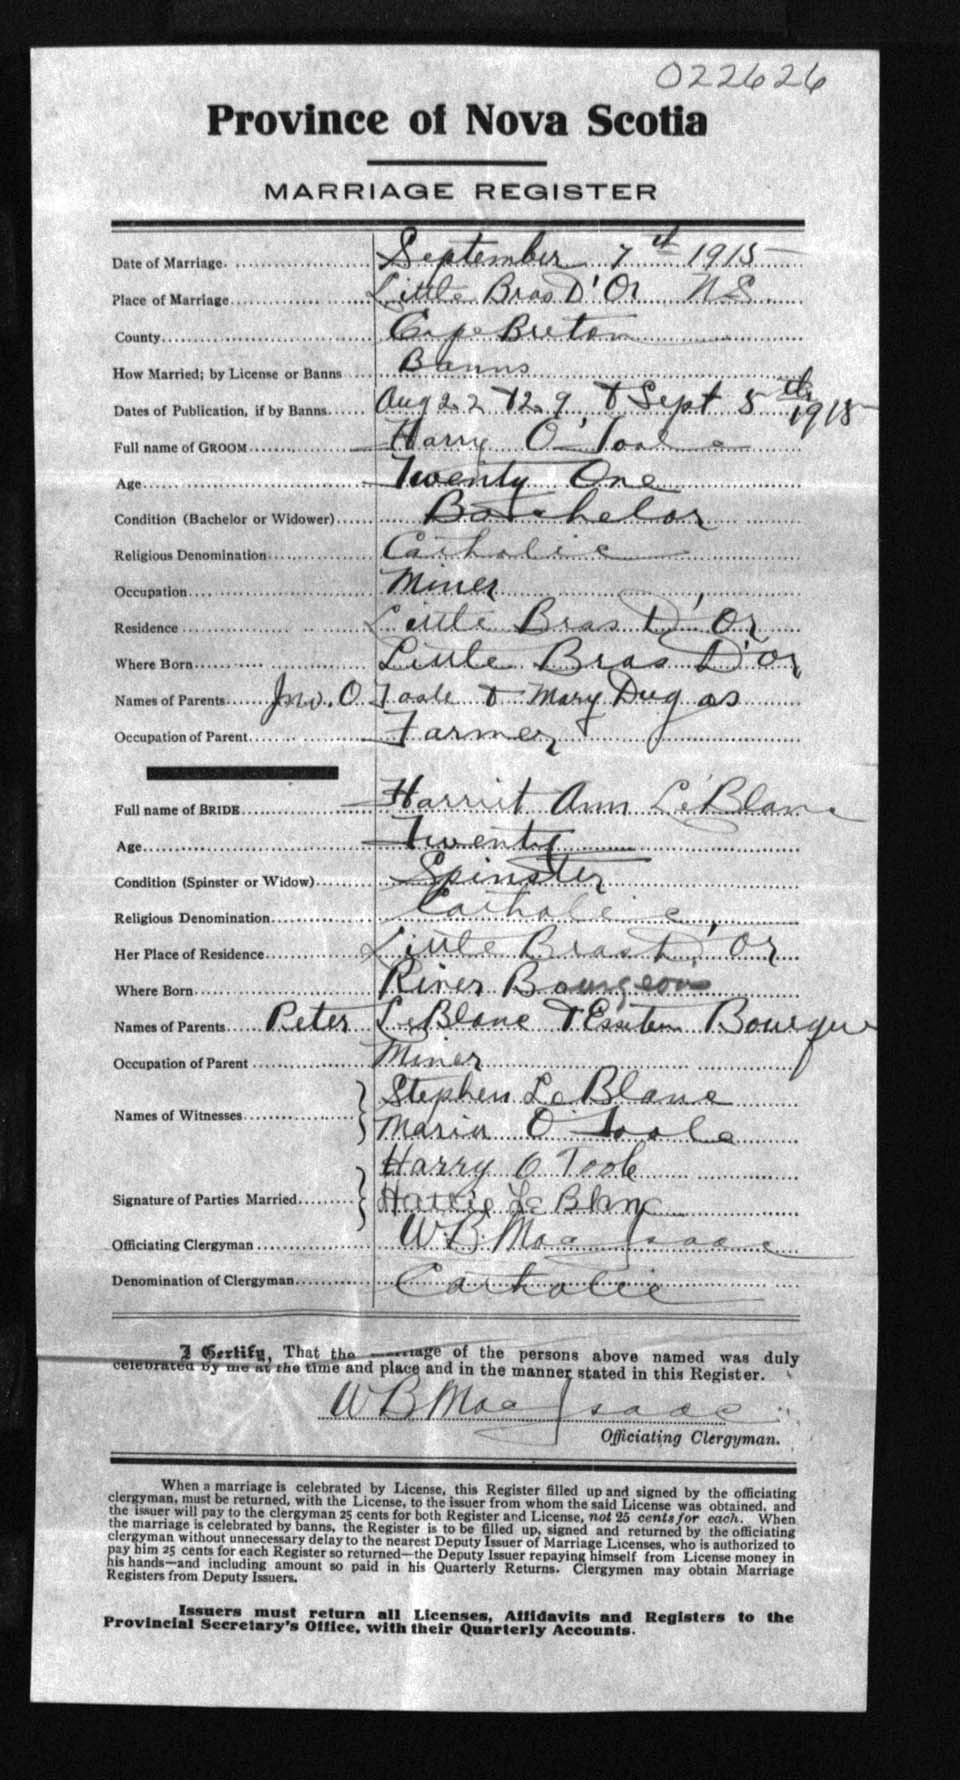 022626
Province of Nova Scotia
MARRIAGE REGISTER
Date of Marriage September 7th 1915
Place of Marriage Little Bras D'Or N S
County Cape Breton
How Married; by License or Banns Banns
Dates of Publication, if by Banns Aug 22 + 29 + Sept 5th 1915
Full name of GROOM Harry O'Toole
Age Twenty One
Condition (Bachelor or Widower) Batchelor
Religious Denomination Catholic
Occupation Miner
Residence Little Bras D'Or
Where Born Little Bras D'Or
Names of Parents Jno. O Toole + Mary Dugas
Occupation of Parent Farmer
Full name of BRIDE Harriet Ann LeBlanc
Age Twenty
Condition (Spinster or Widow) Spinster
Religious Denomination Catholic
Her Place of Residence Little Bras D'Or
Where Born River Bourgeois
Names of Parents Peter LeBlanc + Bourque
Occupation of Parent Miner
Names of Witnesses Stephen Le Blanc
Maria O Toole
Signature of Parties Married Harry O Toole
Hattie Le Blanc
Officiating Clergyman W B MacIsaac
Denomination of Clergyman Catholic
I Certify, That the marriage of the persons above named was duly
celebrated by me at the time and place and in the manner stated in this Register.
W B MacIsaac
Officiating Clergyman.
When a marriage is celebrated by License, this Register filled up and signed by the officiating
clergyman, must be returned, with the License, to the issuer from whom the said License was obtained, and
the issuer will pay to the clergyman 25 cents for both Register and License, not 25 cents for each. When
the marriage is celebrated by banns, the Register is to be filled up, signed and returned by the officiating
clergyman without unnecessary delay to the nearest Deputy Issuer of Marriage Licenses, who is authorized to
pay him 25 cents for each Register so returned—the Deputy Issuer repaying himself from License money in
his hands—and including amount so paid in his Quarterly Returns. Clergymen may obtain Marriage
Registers from Deputy Issuers.
Issuers must return all Licenses, Affidavits and Registers to the
Provincial Secretary's Office, with their Quarterly Accounts.